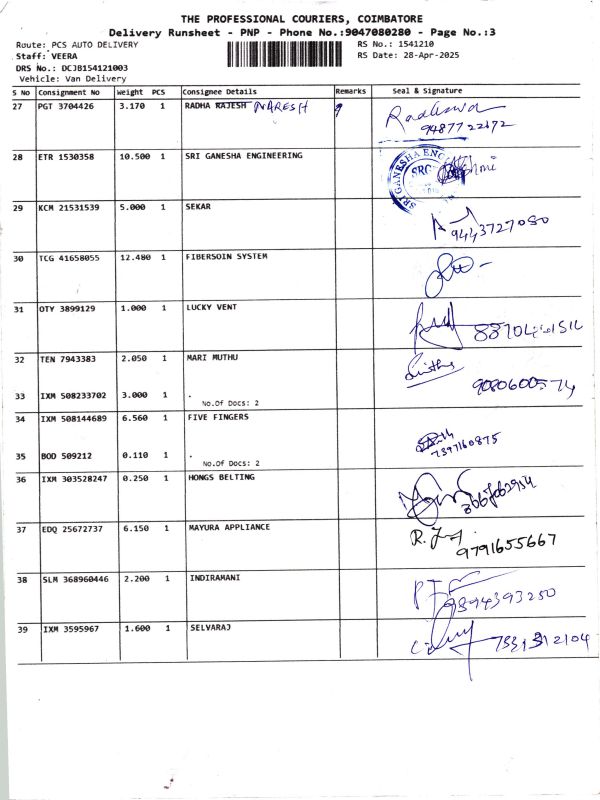 THE PROFESSIONAL COURIERS, COIMBATORE
Delivery Runsheet - PNP - Phone No.:9047080280 - Page No.:3
Route: PCS AUTO DELIVERY RS No.: 1541210
Staff: VEERA RS Date: 28-Apr-2025
DRS No.: DCJB154121003
Vehicle: Van Delivery
S No Consignment No Weight PCS Consignee Details Remarks Seal & Signature
27 PGT 3704426 3.170 1 RADHA RAJESH NARESH
9487722172
28 ETR 1530358 10.500 1 SRI GANESHA ENGINEERING
SRI GANESHA ENG
SRG
29 KCM 21531539 5.000 1 SEKAR
9443727080
30 TCG 41658055 12.480 1 FIBERSOIN SYSTEM
31 OTY 3899129 1.000 1 LUCKY VENT
32 TEN 7943383 2.050 1 MARI MUTHU
33 IXM 508233702 3.000 1 .
No.Of Docs: 2
34 IXM 508144689 6.560 1 FIVE FINGERS
7397160875
35 BOD 509212 0.110 1 .
No.Of Docs: 2
36 IXM 303528247 0.250 1 HONGS BELTING
37 EDQ 25672737 6.150 1 MAYURA APPLIANCE
9791655667
38 SLM 368960446 2.200 1 INDIRAMANI
9894393250
39 IXM 3595967 1.600 1 SELVARAJ